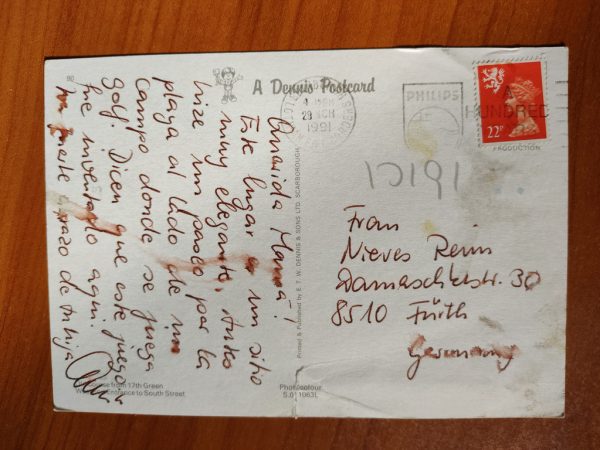 80
A Dennis Postcard
1991
PHILIPS
A
HUNDRED
22P
PRODUCTION
1991
Querida Mamá!
Este lugar es un sitio
muy elegante. Antes
hize un paseo por la
playa al lado de un
campo donde se juega
golf. Dicen que este juego
fue inventado aquí.
Un fuerte abrazo de tu hija
Printed & Published by E. T. W. DENNIS & SONS LTD. SCARBOROUGH
Frau
Nieves Reim
Damaschkestr. 30
8510 Fürth
Germany
from 17th Green
to South Street
Photocolour
S.011963L